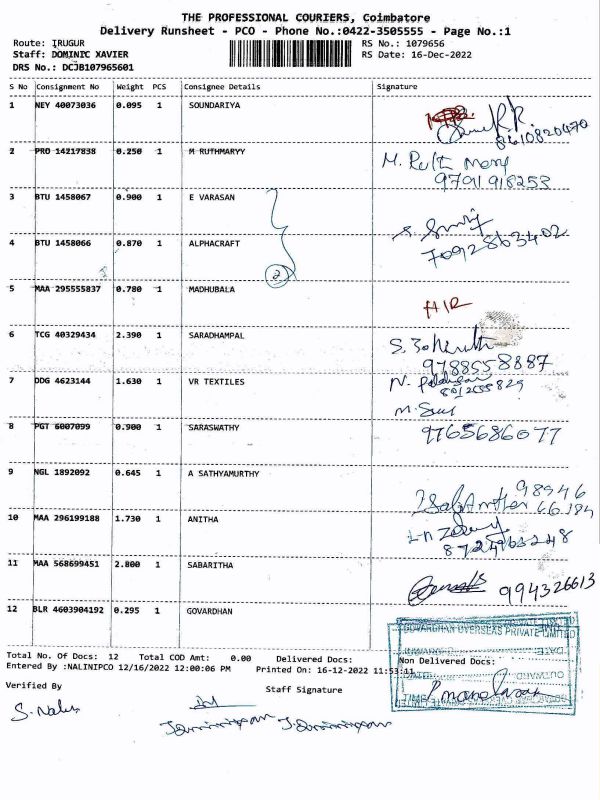 THE PROFESSIONAL COURIERS, Coimbatore
Delivery Runsheet - PCO - Phone No.:0422-3505555 - Page No.:1
Route: IRUGUR RS No.: 1079656
Staff: DOMINIC XAVIER RS Date: 16-Dec-2022
DRS No.: DCJB107965601
S No Consignment No Weight PCS Consignee Details Signature
1 NEY 40073036 0.095 1 SOUNDARIYA
8610820470
2 PRO 14217838 0.250 1 M RUTHMARYY M. Ruth Mary
9791918253
3 BTU 1458067 0.900 1 E VARASAN
4 BTU 1458066 0.870 1 ALPHACRAFT 7092863402
2
5 MAA 295555837 0.780 1 MADHUBALA
AIR
6 TCG 40329434 2.390 1 SARADHAMPAL
9788558887
7 DDG 4623144 1.630 1 VR TEXTILES
8 PGT 6007099 0.900 1 SARASWATHY 9765686077
9 NGL 1892092 0.645 1 A SATHYAMURTHY
98946
10 MAA 296199188 1.730 1 ANITHA
11 MAA 568699451 2.800 1 SABARITHA
994326613
12 BLR 4603904192 0.295 1 GOVARDHAN
GOVARDHAN OVERSEAS PRIVATE LIMITED
Total No. Of Docs: 12 Total COD Amt: 0.00 Delivered Docs: Non Delivered Docs:
Entered By :NALINIPCO 12/16/2022 12:00:06 PM Printed On: 16-12-2022 11:53:11
Verified By Staff Signature